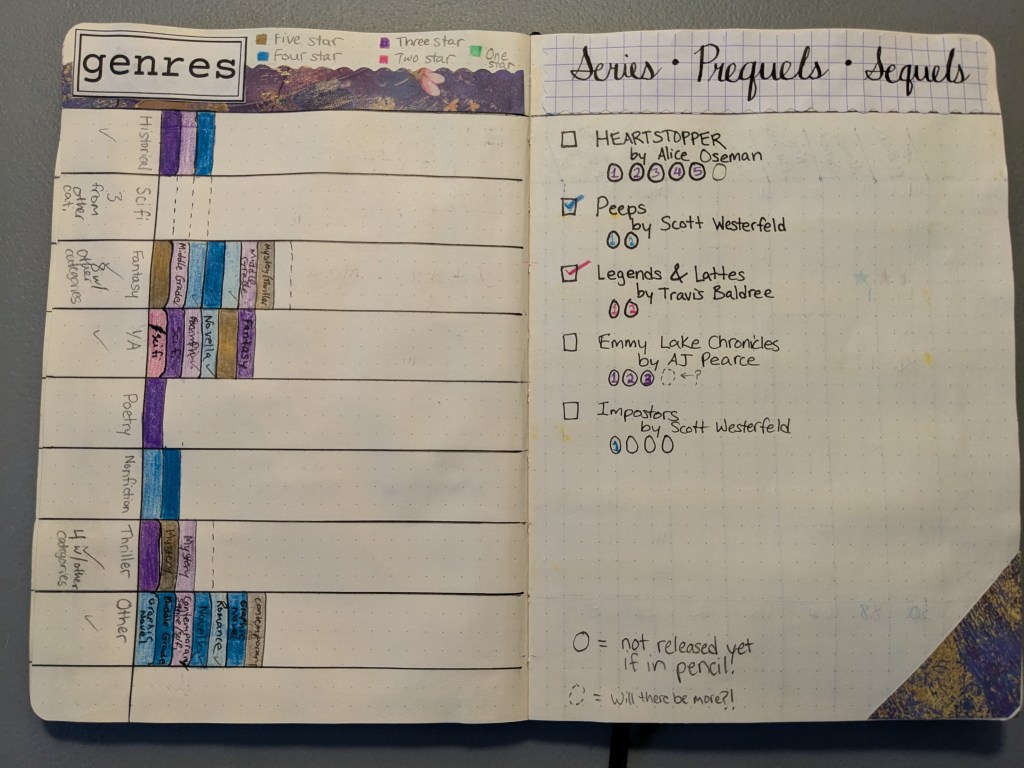 genres
Five star
Four star
Three star
Two star
One
star
Historical
Scifi
3
from
other
cat.
Fantasy
8 w/
other
categories
Middle Grade
Middle
Grade
Mystery/thriller
Y/A
scifi
Scifi
Novella
Fantasy
Poetry
Nonfiction
Thriller
4 w/other
categories
Mystery
Mystery
Other
Graphic
Novel
Middle Grade
Contemporary
Novella
Romance
Graphic
Novel
contemporary
Series · Prequels · Sequels
HEARTSTOPPER
by Alice Oseman
1 2 3 4 5
Peeps
by Scott Westerfeld
1 2
Legends & Lattes
by Travis Baldree
1 2
Emmy Lake Chronicles
by AJ Pearce
1 2 3 ←?
Impostors
by Scott Westerfeld
1
= not released yet
if in pencil!
= Will there be more?!